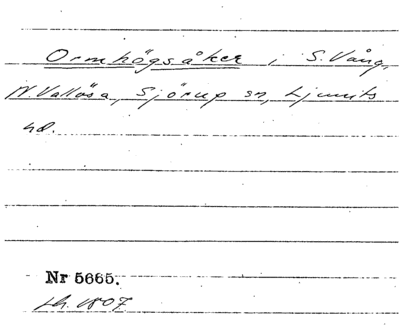 Ormhögsåker i S. Vång,
N. Vallösa, Sjörup sn, Ljunits
hd.
Nr 5665.
1807